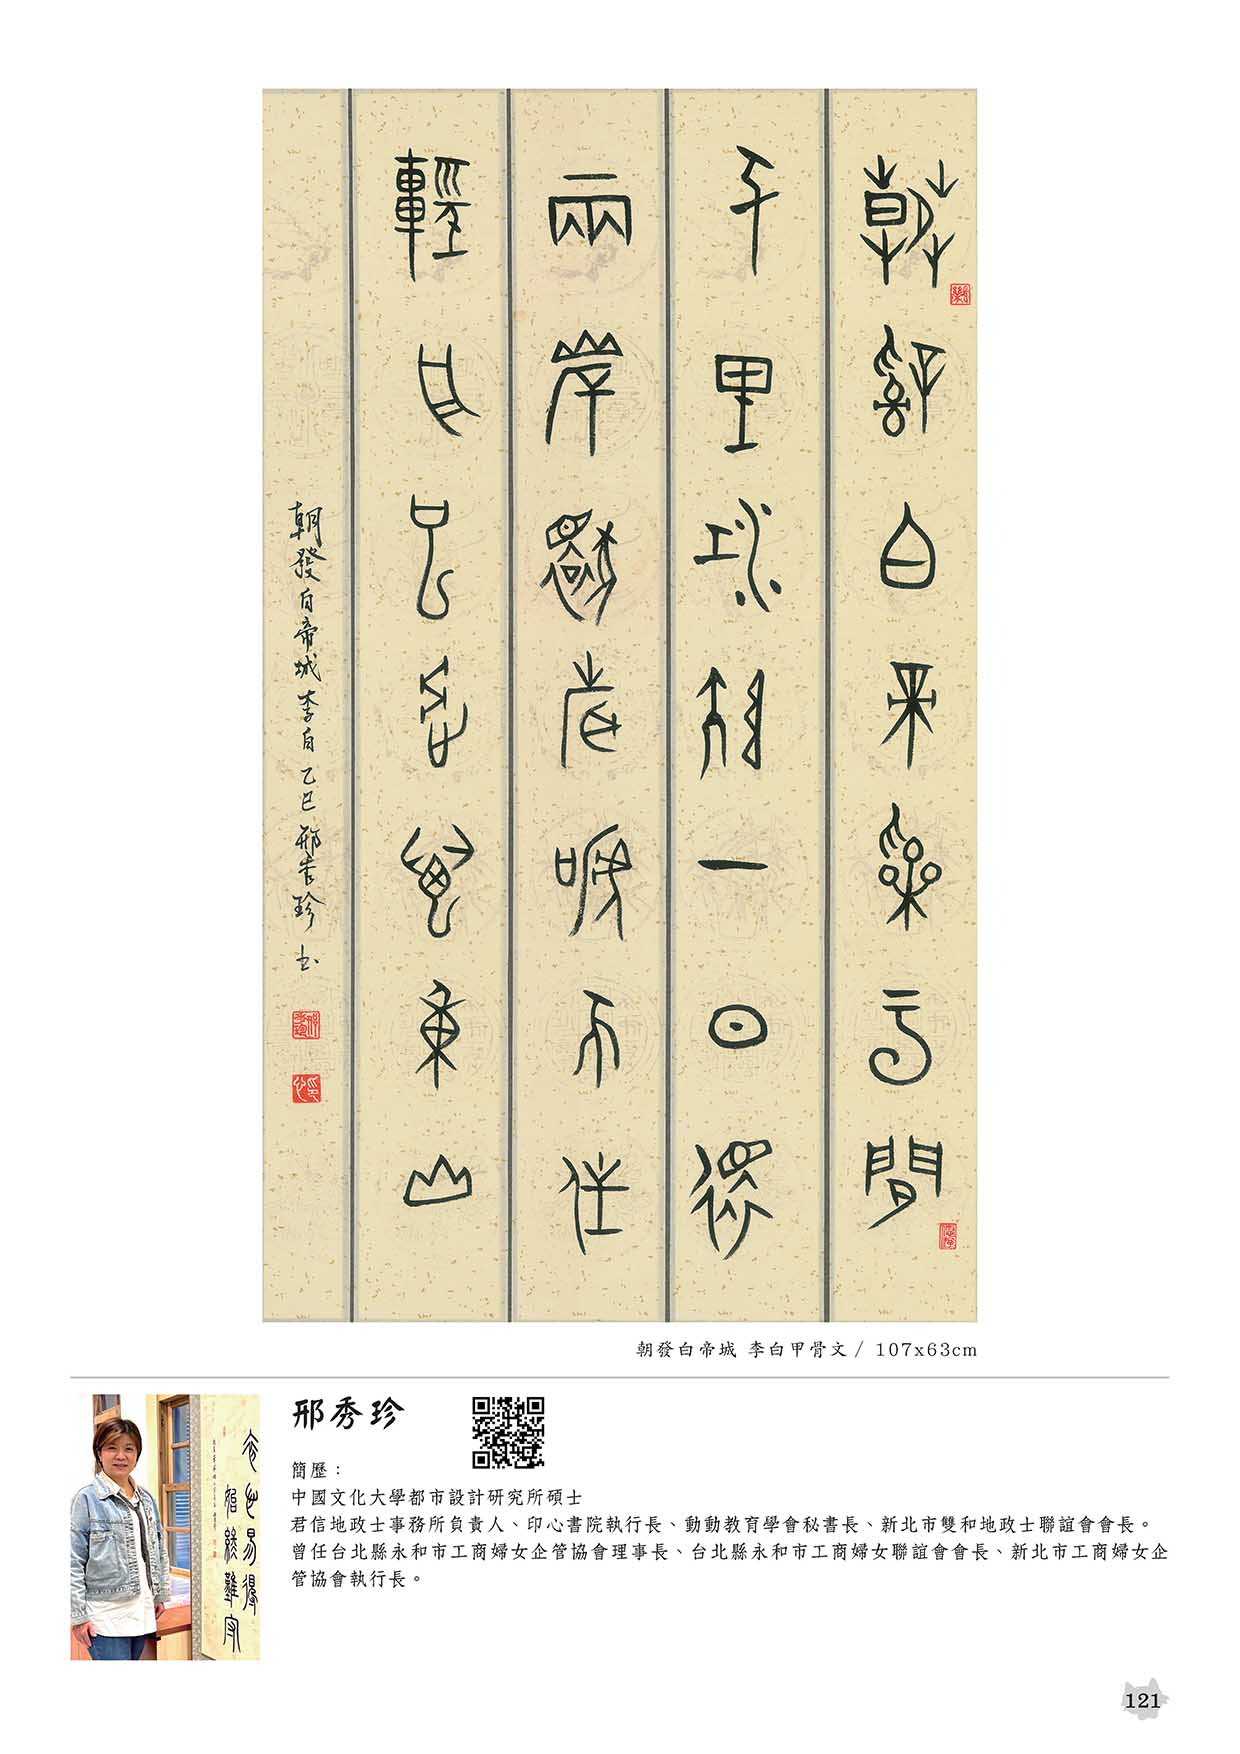 朝辭白帝彩雲間
千里江陵一日還
兩岸猿聲啼不住
輕舟已過萬重山
朝發白帝城 李白 乙巳 邢秀珍 书
朝發白帝城 李白甲骨文 / 107x63cm
邢秀珍
簡歷：
中國文化大學都市設計研究所碩士
君信地政士事務所負責人、印心書院執行長、動動教育學會秘書長、新北市雙和地政士聯誼會會長。
曾任台北縣永和市工商婦女企管協會理事長、台北縣永和市工商婦女聯誼會會長、新北市工商婦女企
管協會執行長。
121